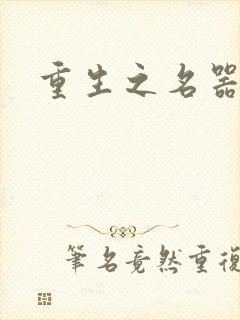 重生之名器
筆名竟然重復